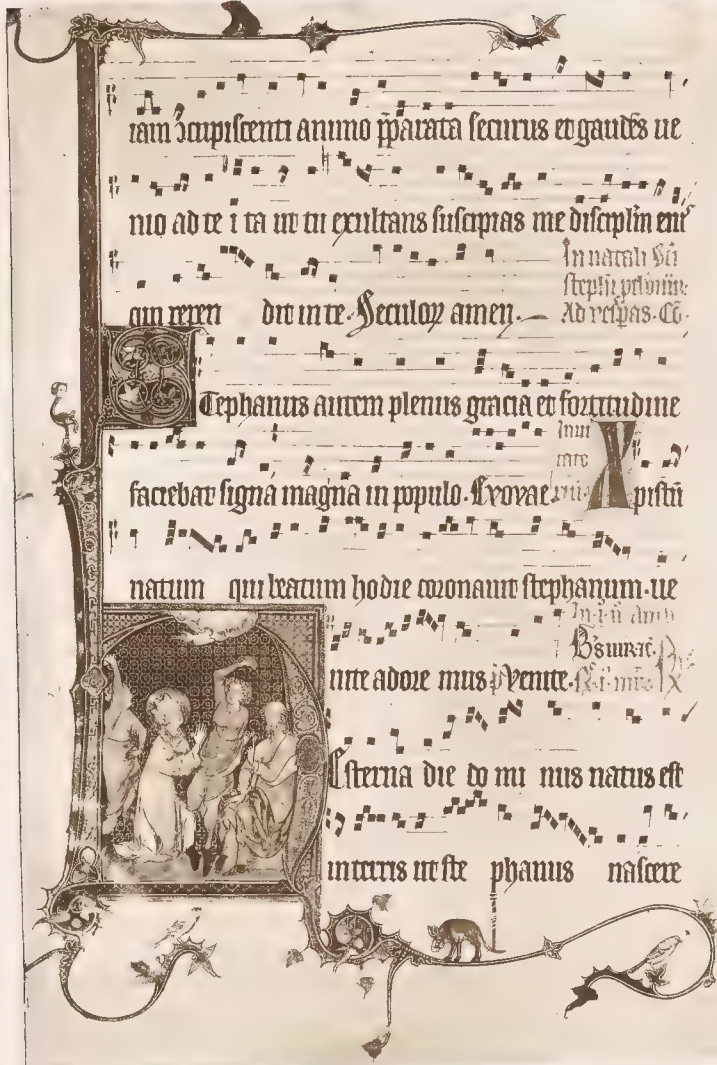 iam ɔcupiscenti animo p̄parata securus et gaudēs ue
nio ad te i ta ut tu exultans suscipias me disciplin eni᷒
qui pepen dit in te. Seculoꝝ amen.
In natali
steph
Ad vesp̄as.
Stephanus autem plenus gracia et fortitudine
faciebat signa magna in populo. Evovae.
Inui
tato
Xpistū
natum qui beatum hodie coronauit stephanum. ue
nite adore mus p̄ Venite.
Esterna die do mi nus natus est
in terris ut ste phanus nascere